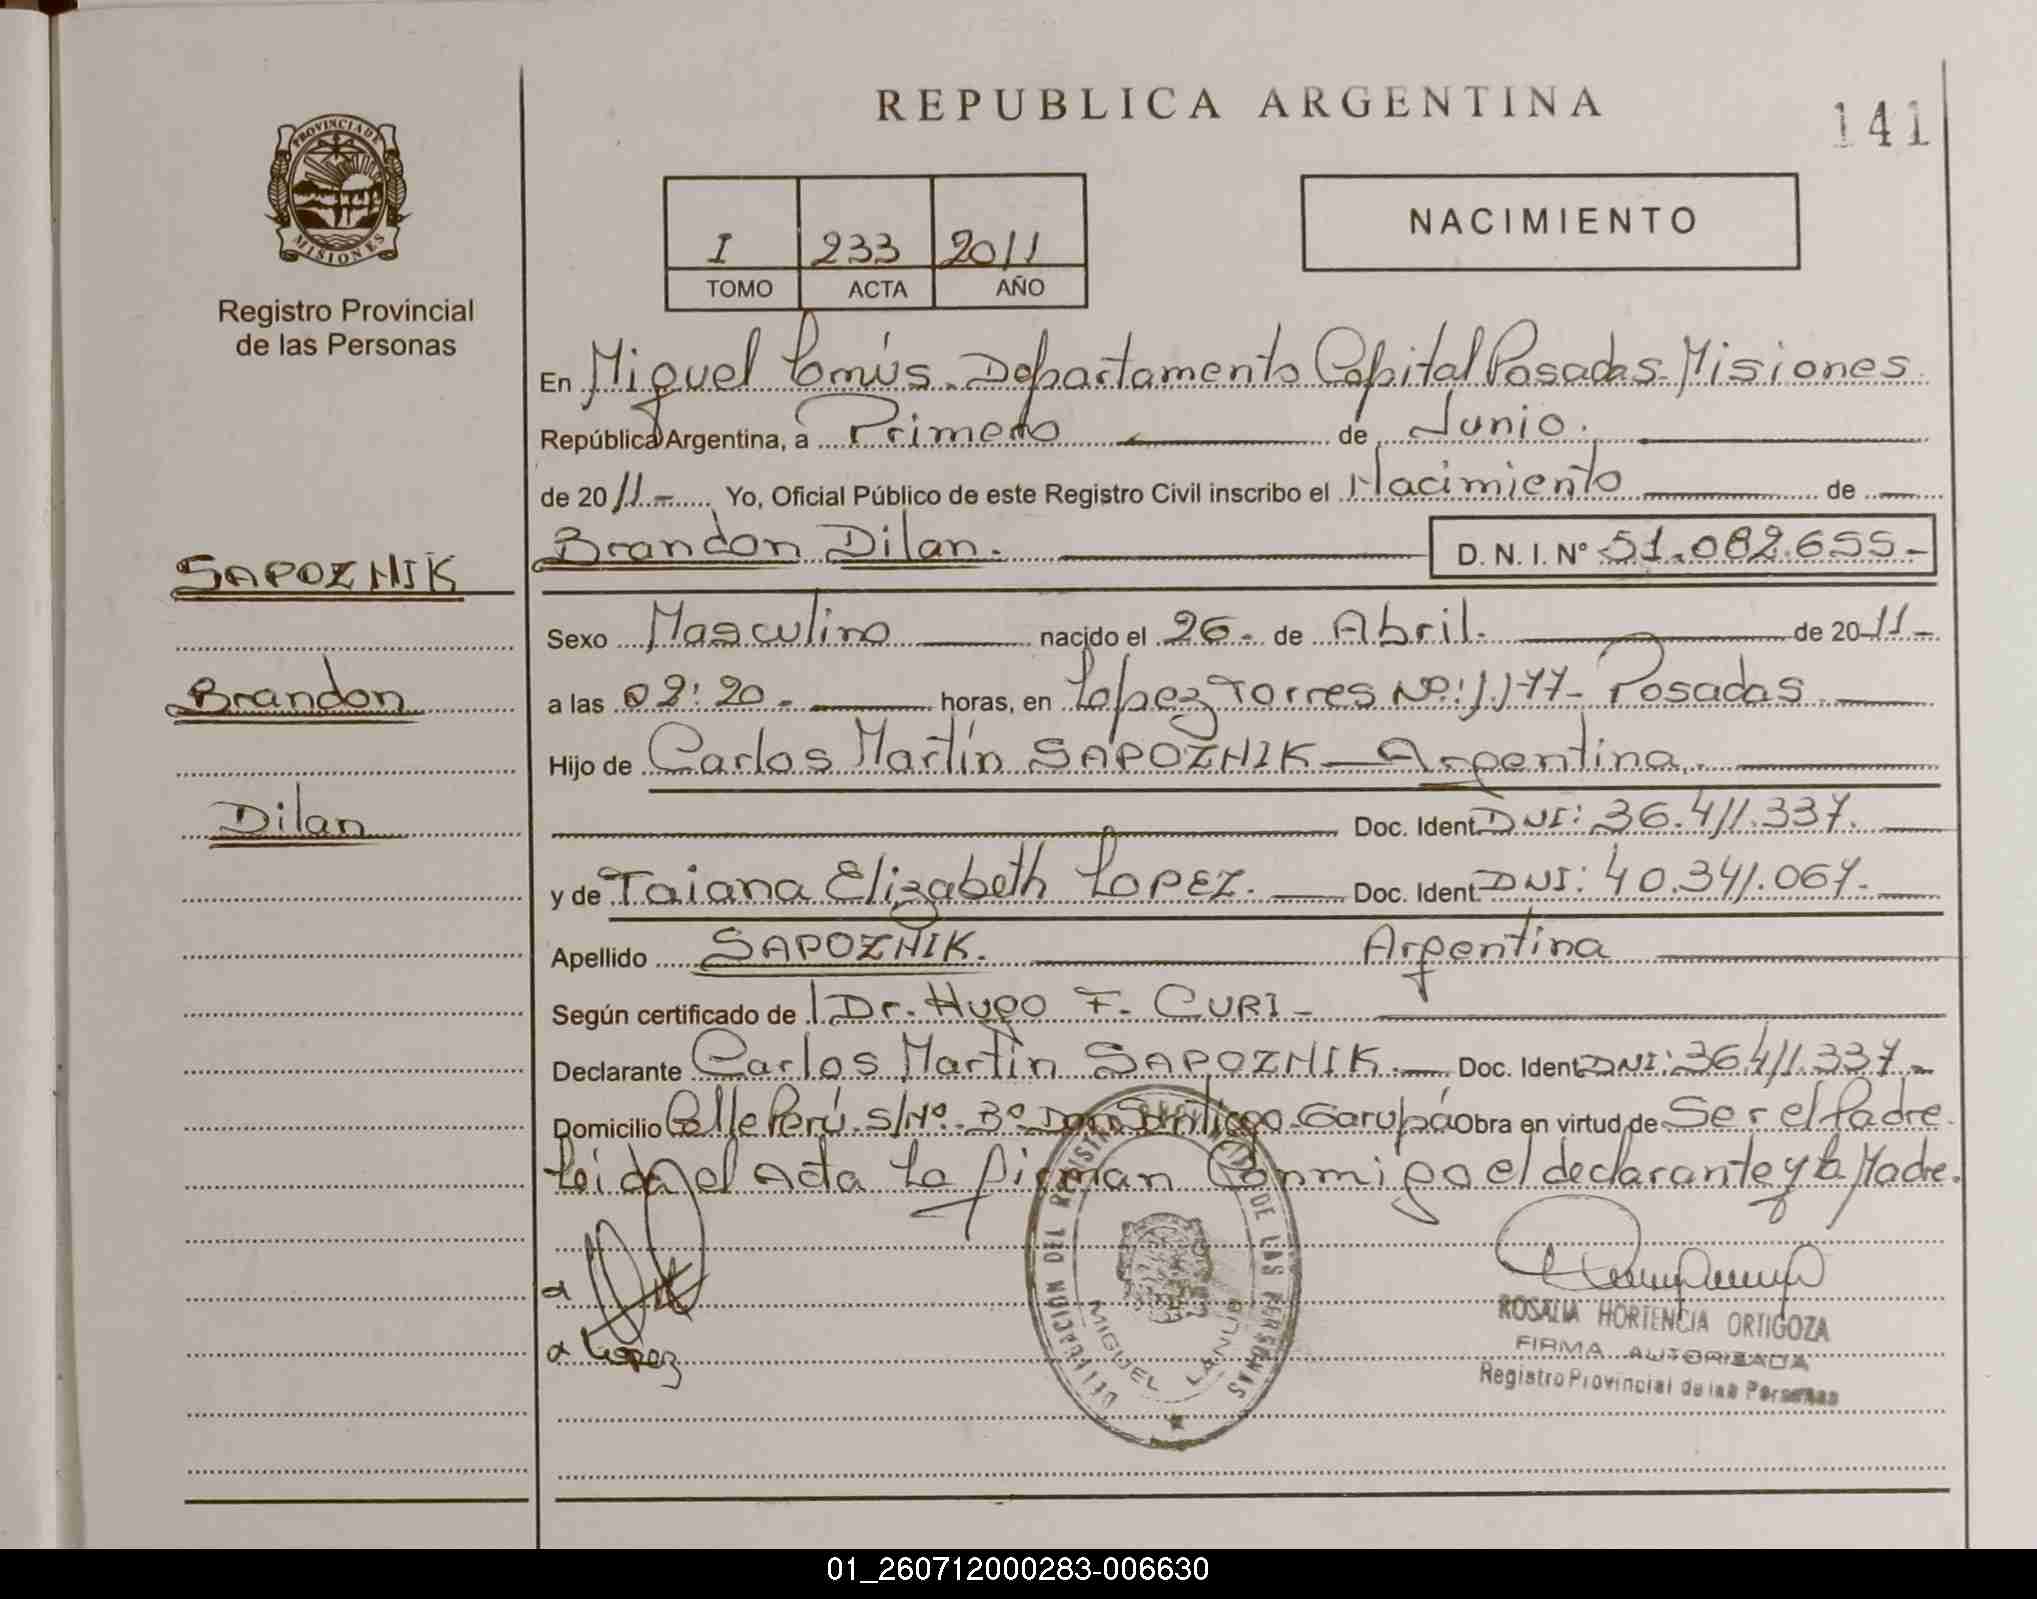 REPUBLICA ARGENTINA
141
PROVINCIA DE
MISIONES
Registro Provincial
de las Personas
I 233 2011
TOMO ACTA AÑO
NACIMIENTO
En Miguel Lanús. Departamento Capital Posadas. Misiones
República Argentina, a Primero de Junio.
de 2011.- Yo, Oficial Público de este Registro Civil inscribo el Nacimiento de
SAPOZNIK
Brandon Dilan. D. N. I. Nº 51.082.655.-
Sexo Masculino nacido el 26- de Abril. de 2011-
Brandon
a las 02:20- horas, en Lopez Torres Nº: 1.177- Posadas
Hijo de Carlos Martín SAPOZNIK - Argentina.
Dilan
Doc. Ident. DNI: 36.411.337.
y de Taiana Elizabeth LOPEZ. Doc. Ident. DNI: 40.341.067.-
Apellido SAPOZNIK. Argentina
Según certificado de Dr. Hugo F. CURI -
Declarante Carlos Martín SAPOZNIK.- Doc. Ident. DNI: 36.411.337.-
Domicilio Calle Perú. s/Nº. Bº Don Santiago Garupá Obra en virtud de Ser el Padre.
Leida el Acta La firman Conmigo el declarante y la Madre.
Lopez
DELEGACION DEL REGISTRO DE LAS PERSONAS
MIGUEL LANUS
ROSALIA HORTENCIA ORTIGOZA
FIRMA AUTORIZADA
Registro Provincial de las Personas
01_260712000283-006630